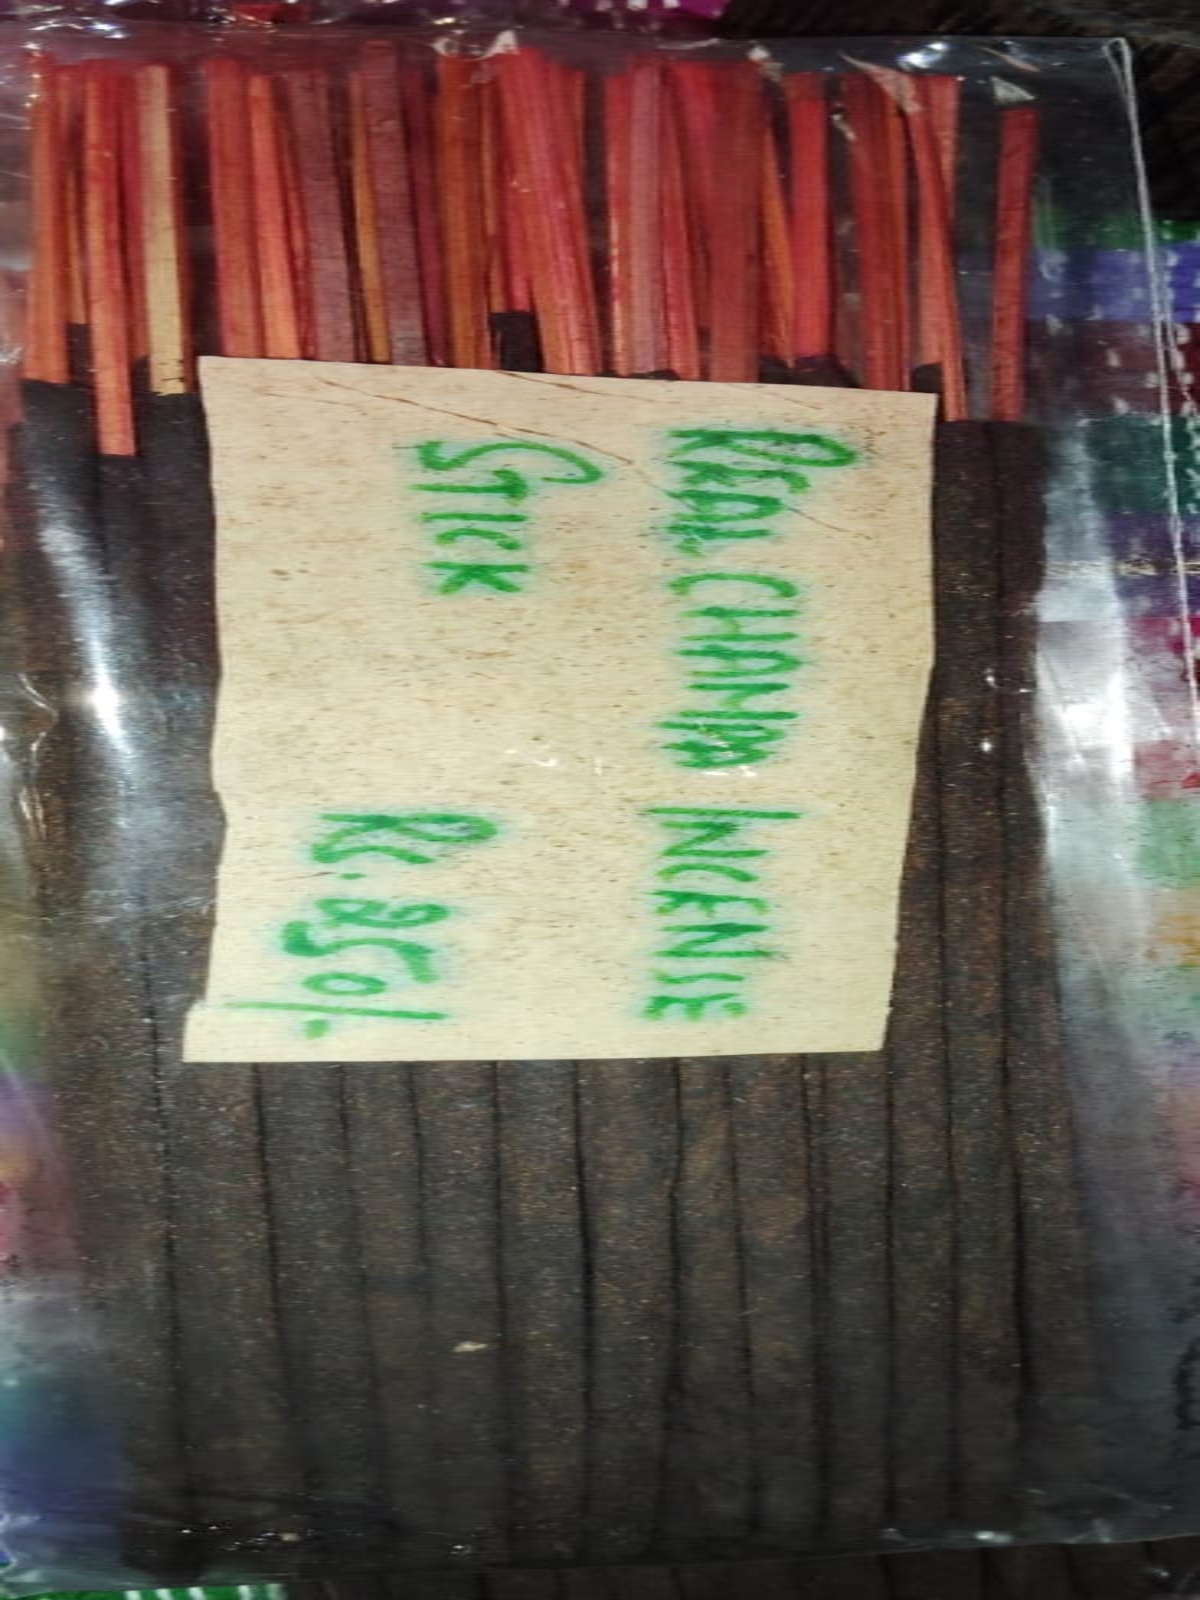 REAL CHAMPA INCENSE
STICK
RS. 250/-